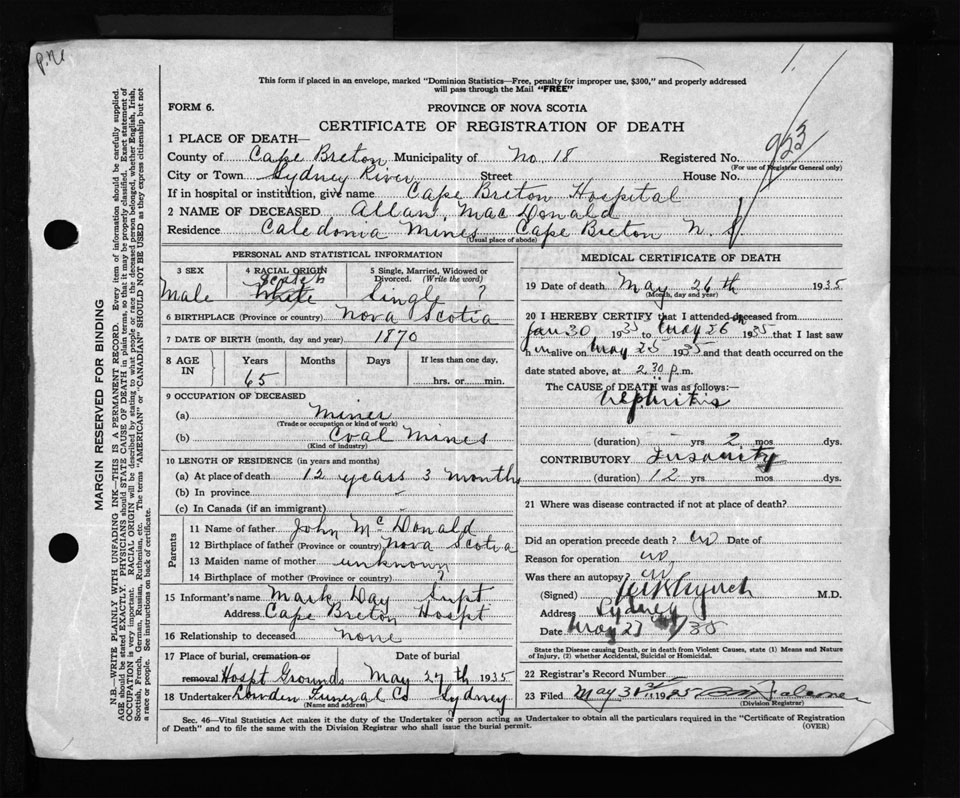 P.N.
This form if placed in an envelope, marked "Dominion Statistics—Free, penalty for improper use, $300," and properly addressed
will pass through the Mail "FREE"
FORM 6.
PROVINCE OF NOVA SCOTIA
CERTIFICATE OF REGISTRATION OF DEATH
1 PLACE OF DEATH—
County of Cape Breton Municipality of No. 18 Registered No. 923
(For use of Registrar General only)
City or Town Sydney River Street House No.
If in hospital or institution, give name Cape Breton Hospital
2 NAME OF DECEASED Allan, MacDonald
Residence Caledonia Mines Cape Breton N. S.
(Usual place of abode)
PERSONAL AND STATISTICAL INFORMATION
3 SEX 4 RACIAL ORIGIN 5 Single, Married, Widowed or
Divorced. (Write the word)
Scotch
Male White Single ?
6 BIRTHPLACE (Province or country) Nova Scotia
7 DATE OF BIRTH (month, day and year) 1870
8 AGE IN Years Months Days If less than one day,
65 hrs. or min.
9 OCCUPATION OF DECEASED
(a) Miner
(Trade or occupation or kind of work)
(b) Coal Mines
(Kind of industry)
10 LENGTH OF RESIDENCE (in years and months)
(a) At place of death 12 years 3 months
(b) In province
(c) In Canada (if an immigrant)
Parents
11 Name of father John McDonald
12 Birthplace of father (Province or country) Nova Scotia
13 Maiden name of mother unknown
14 Birthplace of mother (Province or country) ?
15 Informant's name Mark Day Supt
Address Cape Breton Hospt
16 Relationship to deceased None
17 Place of burial, cremation or Date of burial
removal Hospt Grounds May 27th 1935
18 Undertaker Lowden Funeral Co Sydney
(Name and address)
MEDICAL CERTIFICATE OF DEATH
19 Date of death May 26th 1935
(Month, day and year)
20 I HEREBY CERTIFY that I attended deceased from
Jan 30 1935 to May 26th 1935 that I last saw
h im alive on May 25 1935 and that death occurred on the
date stated above, at 2.30 p.m.
The CAUSE of DEATH was as follows:—
Nephritis
(duration) yrs 2 mos dys.
CONTRIBUTORY Insanity
(duration) 12 yrs mos dys.
21 Where was disease contracted if not at place of death?
Did an operation precede death? no Date of
Reason for operation no
Was there an autopsy? no
(Signed) Lynch M.D.
Address Sydney
Date May 27 /35
State the Disease causing Death, or in death from Violent Causes, state (1) Means and Nature
of Injury, (2) whether Accidental, Suicidal or Homicidal.
22 Registrar's Record Number
23 Filed May 31st 1935
(Division Registrar)
Sec. 46—Vital Statistics Act makes it the duty of the Undertaker or person acting as Undertaker to obtain all the particulars required in the "Certificate of Registration
of Death" and to file the same with the Division Registrar who shall issue the burial permit. (OVER)
MARGIN RESERVED FOR BINDING
N.B.—WRITE PLAINLY WITH UNFADING INK—THIS IS A PERMANENT RECORD. Every item of information should be carefully supplied.
AGE should be stated EXACTLY. PHYSICIANS should STATE CAUSE OF DEATH in plain terms, so that it may be properly classified. Exact statement of
OCCUPATION is very important. RACIAL ORIGIN will be described by stating to what people or race the deceased person belonged, whether English, Irish,
Scottish, French, German, Russian, Ruthenian, etc. The terms "AMERICAN" or "CANADIAN" SHOULD NOT BE USED as they express citizenship but not
a race or people. See instructions on back of certificate.